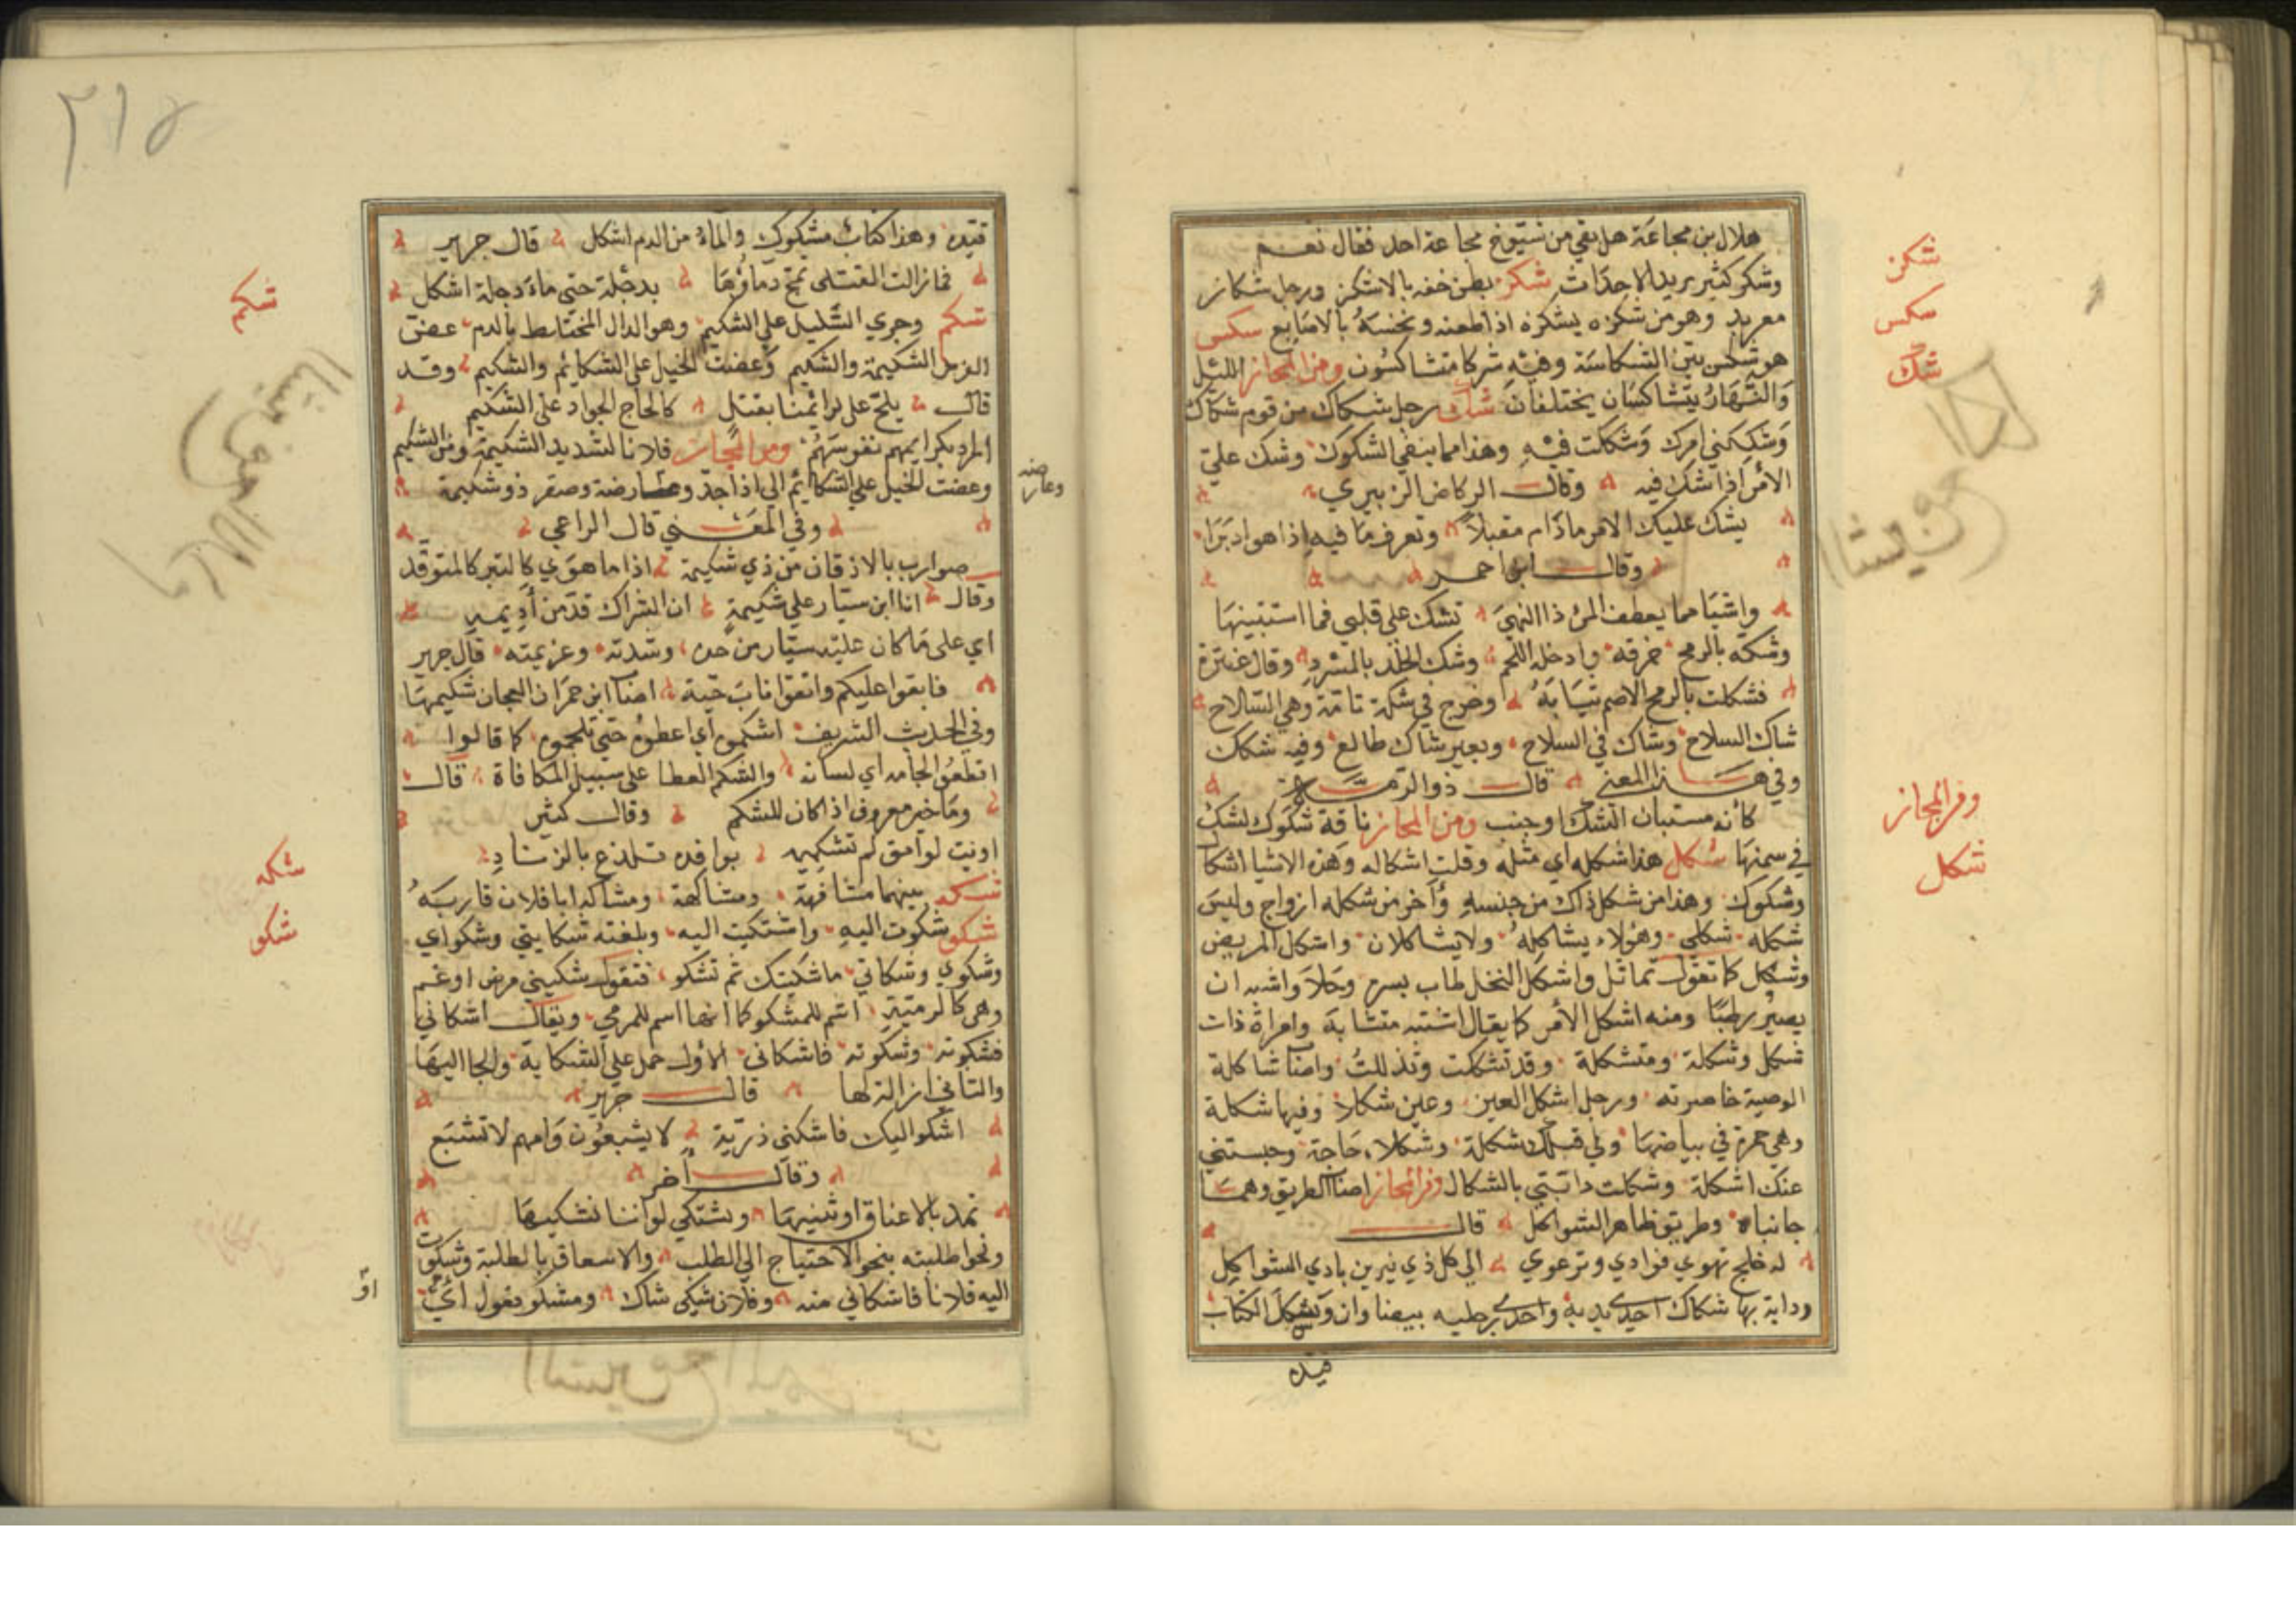 هلال بن مجاعة هل بقي من شيوخ مجاعة احد فقال نعم
وشكر كثير يريد الاحداث شكز بطن خفه بالاشكز ورجل شكاز
معربد وهو من شكزه يشكزه اذا طعنه ونخسه بالاصابع سكس
هو شكس بين الشكاسة وفيه شركا متشاكسون ومن المجاز الليل
والنهار يتشاكسان يختلفان شك رجل شكاك من قوم شكاك
وشككني امرك وشككت فيه وهذا مما ينفي الشكوك وشك علي
الامر اذا شك فيه وقال الركاض الزبيري
يشك عليك الامر ما دام مقبلا وتعرف ما فيه اذا هو ادبرا
وقال ابن احمر
واشيا مما يعطف المرء ذا النهى تشك على قلبي فما استبينها
وشكه بالرمح خرقه وادخله اللحم وشك الجلد بالمسرد وقال عنترة
فشككت بالرمح الاصم ثيابه وخرج في شكة تامة وهي السلاح
شاك السلاح وشاك في السلاح وبعير شاك ظالع وفيه شكك
وفي هذا المعنى قال ذو الرمة
كأنه مستبان الشك او جنب ومن المجاز ناقة شكوك لشك
في سمنها شكل هذا شكله اي مثله وقلت اشكاله وهذه الاشيا اشكال
وشكوك وهذا من شكل ذاك من جنسه وآخر من شكله ازواج وليس
شكله شكلي وهؤلاء يشاكله ولا يشاكلان واشكل المريض
وشكل كما تقول تماثل واشكل النخل طاب بسره وحلا واشبه ان
يصير رطبا ومنه اشكل الأمر كما يقال اشتبه متشابه وامراة ذات
شكل وشكلة ومتشكلة وقد تشكلت وتدللت واصنا شاكلة
الرمية خاصرته ورجل اشكل العين وعين شكلا وفيها شكلة
وهي حمرة في بياضها ولي قبلك شكلة وشكلاء حاجة وحبستني
عنك اشكلة وشكلت دابتي بالشكال ومن المجاز اصنا الطريق وهما
جانباه وطريق ظاهر الشواكل قال
له خليج تهوي فرادي وترعوي الى كل ذي نيرين بادي الشواكل
ودابة بها شكاك احدي يديه واحدي رجليه بيضاوان وشكل الكتاب
قيده
شكز
سكس
شك
ومن المجاز
شكل
٢١٥
قيده وهذا كتاب مشكوك والماء من الدم اشكل قال جرير
فما زالت القتلى تمج دماؤها بدجلة حتى ماء دجلة اشكل
شكم وجري الشليل على الشكيم وهو الدال المختلط بالدم عضت
الشكيمة والشكيم وعضت الخيل على الشكائم والشكيم وقد
قال يلح على براثمنا بقتل كالحاح الجواد على الشكيم
نفوسهم ومن المجاز فلانا لشديد الشكيمة ومن الشكيم
وعضت الخيل على الشكائم الى اذا جد وعارضة وصقر ذو شكيمة
وفي المعنى قال الراعي
صوارب بالاذقان من ذي شكيمة اذا ما هوي كالتبر كالمتوقد
وقال انا ابن سيار على شكيمة ان الشراك قد من أديمه
اي على ما كان عليه سيار من حده وشدته وعزيمته قال جرير
فابقوا عليكم واتقوا ناب حية اصنا ابن حمران العجان شكيمها
وفي الحديث الشريف اشكموه أي اعطوه حتى تلجموه كما قالوا
اقطعوا لجامه اي لسانه والشكم العطا على سبيل المكافاة قال
وما خير معروف اذا كان للشكم وقال كثير
اونيت لوامق لم تشكميه بوافده تلذع بالزناد
شكه بينهما مشافهة ومشاكهة ومشاكه ابا فلان قاربه
شكو شكوت اليه واشتكيت اليه وبلغته شكايتي وشكواي
وشكوي وشكاتي ما شكيتك ثم تشكو فتقول شكيني مرض او غم
وهي كالرمية اسم للمشكو كما انها اسم للمرمي ويقال اشكاني
فشكوته وشكوته فاشكاني الاول حمل على الشكاية والجا اليها
والثاني ازالته لها قال جرير
اشكو اليك فاشكني ذرية لا يشبعون وامهم لا تشبع
وقال آخر
تمد بالاعناق او تثنيها وتشتكي لو اننا نشكيها
ونحوا طلبته بنحو الاحتياج الى الطلب والاسعاف بالطلبة وشكوت
اليه فلانا فاشكاني منه وفلان شيكي شاك ومشكو يقول أي
او
شكم
شكه
شكو